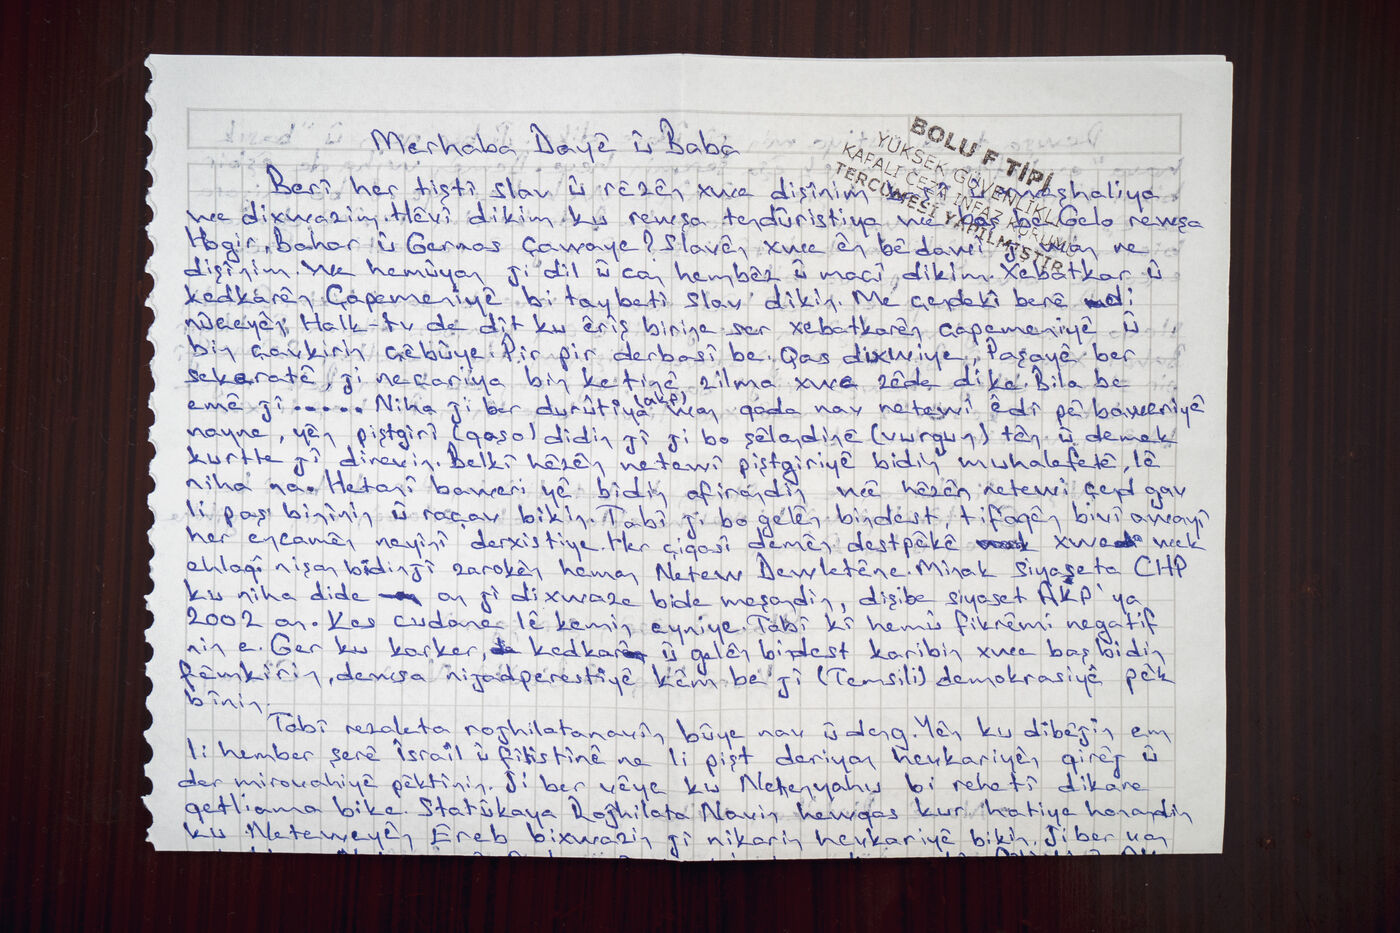 Merhaba Dayê û Baba
BOLU F TİPİ
YÜKSEK GÜVENLİKLİ
KAPALI CEZA İNFAZ KURUMU
TERCÜMESİ YAPILMIŞTIR
Berî her tiştî slav û rêzên xwe dişînim û meşhaliya
we dixwazim. Hêvî dikim ku rewşa tendûristiya we xoş be. Gelo rewşa
Hogir, Bahar û Germas çawaye? Slavên xwe ên bê dawî ji wan re
dişînim. We hemûyan ji dil û can hembêz û macî dikim. Xebatkar û
kedkarên Çapemeniyê bi taybetî slav dikin. Me çendekî berê di
nûçeyên Halk-tv de dît ku êriş birine ser xebatkarên çapemeniyê û
bin çavkirin çêbûye. Pir pir derbasî be. Qas dixwiye, Paşayê ber
sekeratê, ji neçariya bin ketinê zilma xwe zêde dike. Bila be
emê jî ..... Niha ji ber durûtiya (akp) wan qada nav netewî êdî pê baweriyê
nayne, yên piştgirî (qaso) didin jî ji bo şêlandinê (vurgun) tên û demek
kurtte jî direvin. Belkî hêzên netewî piştgiriyê bidin muhalefetê, lê
niha na. Hetanî baweriyê bidin afirandin wê hêzên netewî çend gav
li paş bininin û raçav bikin. Tabî ji bo gelên bindest, tifaqên bivî awayî
her encamên neyînî derxistiye. Her çiqasî demên destpêkê xwe wek
ehlaqî nişan bidin jî zarokên heman Netew Dewletêne. Mînak siyaseta CHP
ku niha dide an jî dixwaze bide meşandin, dişibe siyaset AKP'ya
2002 an. Kes cudane lê kemin eyniye. Tabî kî hemû fikrêmi negatif
nin e. Ger ku karker, kedkar û gelên bindest karibin xwe baş bidin
fêmkirin, dewsa nijadperestiyê kêm be jî (Temsili) demokrasiyê pêk
bînin.
Tabî rezaleta rojhilatanavîn bûye nav û deng. Yên ku dibêjin em
li hember şerê Îsraîl û filistînê ne li pişt deriyan hevkariyên qirêj û
der mirovahiyê pêktînin. Ji ber vêye ku Netenyahu bi rehetî dikare
qetliama bike. Statûkaya Rojhilata Navîn hewqas kur hatiye honandin
ku Neteweyên Ereb bixwazin jî nikarin hevkariyê bikin. Ji ber van